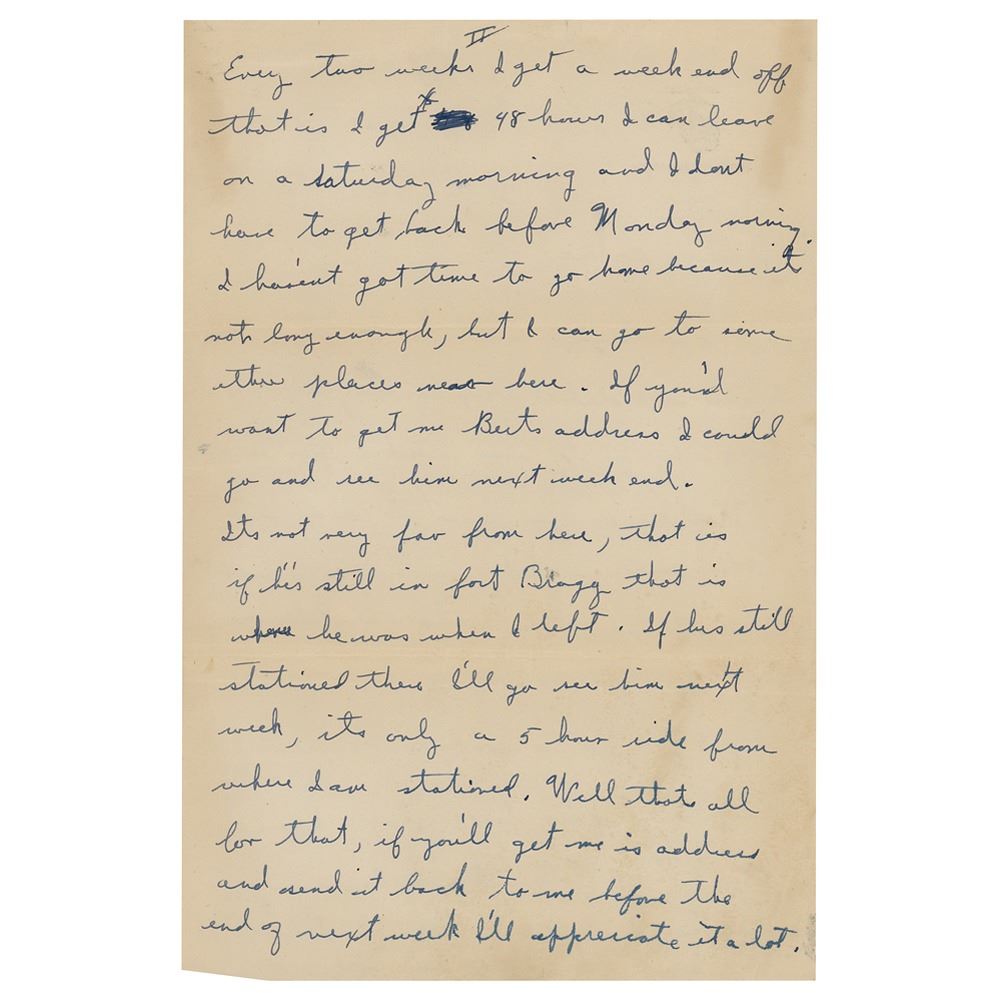 II
Every two weeks I get a week end off
that is I get 48 hours I can leave
on a Saturday morning and I dont
have to get back before Monday morning.
I hav'ent got time to go home because it
not long enough, but I can go to some
other places near here. If you'd
want to get me Berts address I could
go and see him next week end.
Its not very far from here, that is
if he's still in fort Bragg that is
where he was when I left. If his still
stationed there I'll go see him next
week, its only a 5 hour ride from
where I am stationed. Well thats all
for that, if you'll get me is address
and send it back to me before the
end of next week I'll appreciate it a lot.